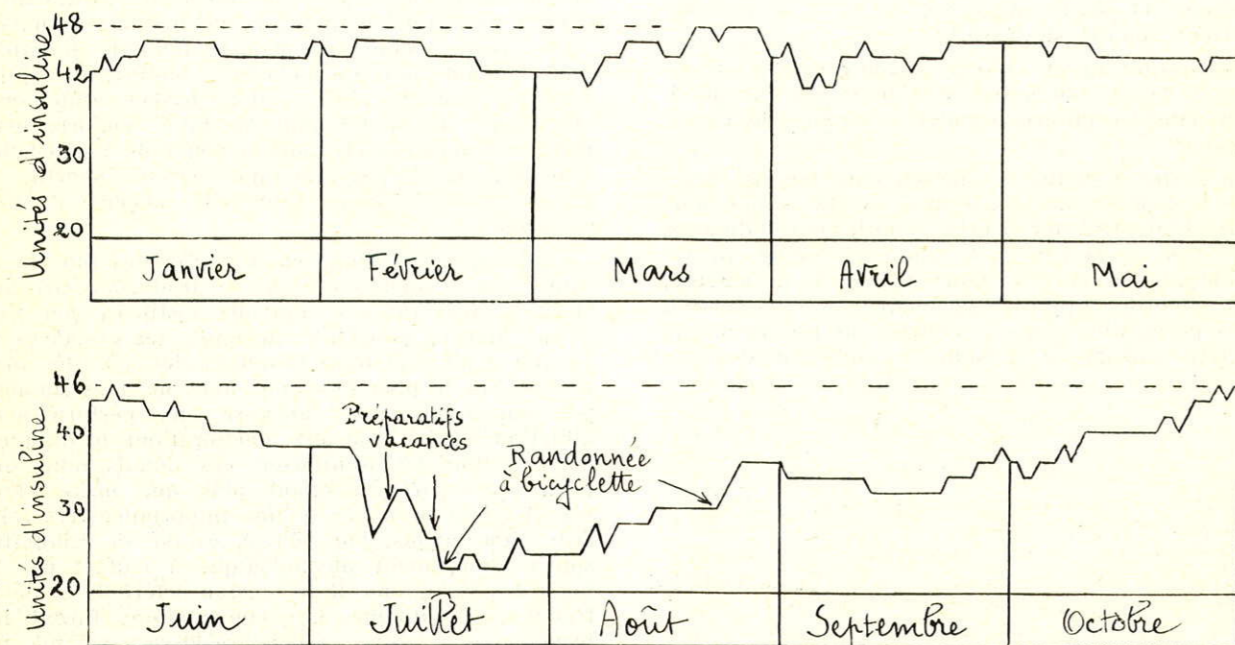 Unités d'insuline
48
42
30
20
Janvier Février Mars Avril Mai
Unités d'insuline
46
40
30
20
Préparatifs
vacances
Randonnée
à bicyclette
Juin Juillet Août Septembre Octobre